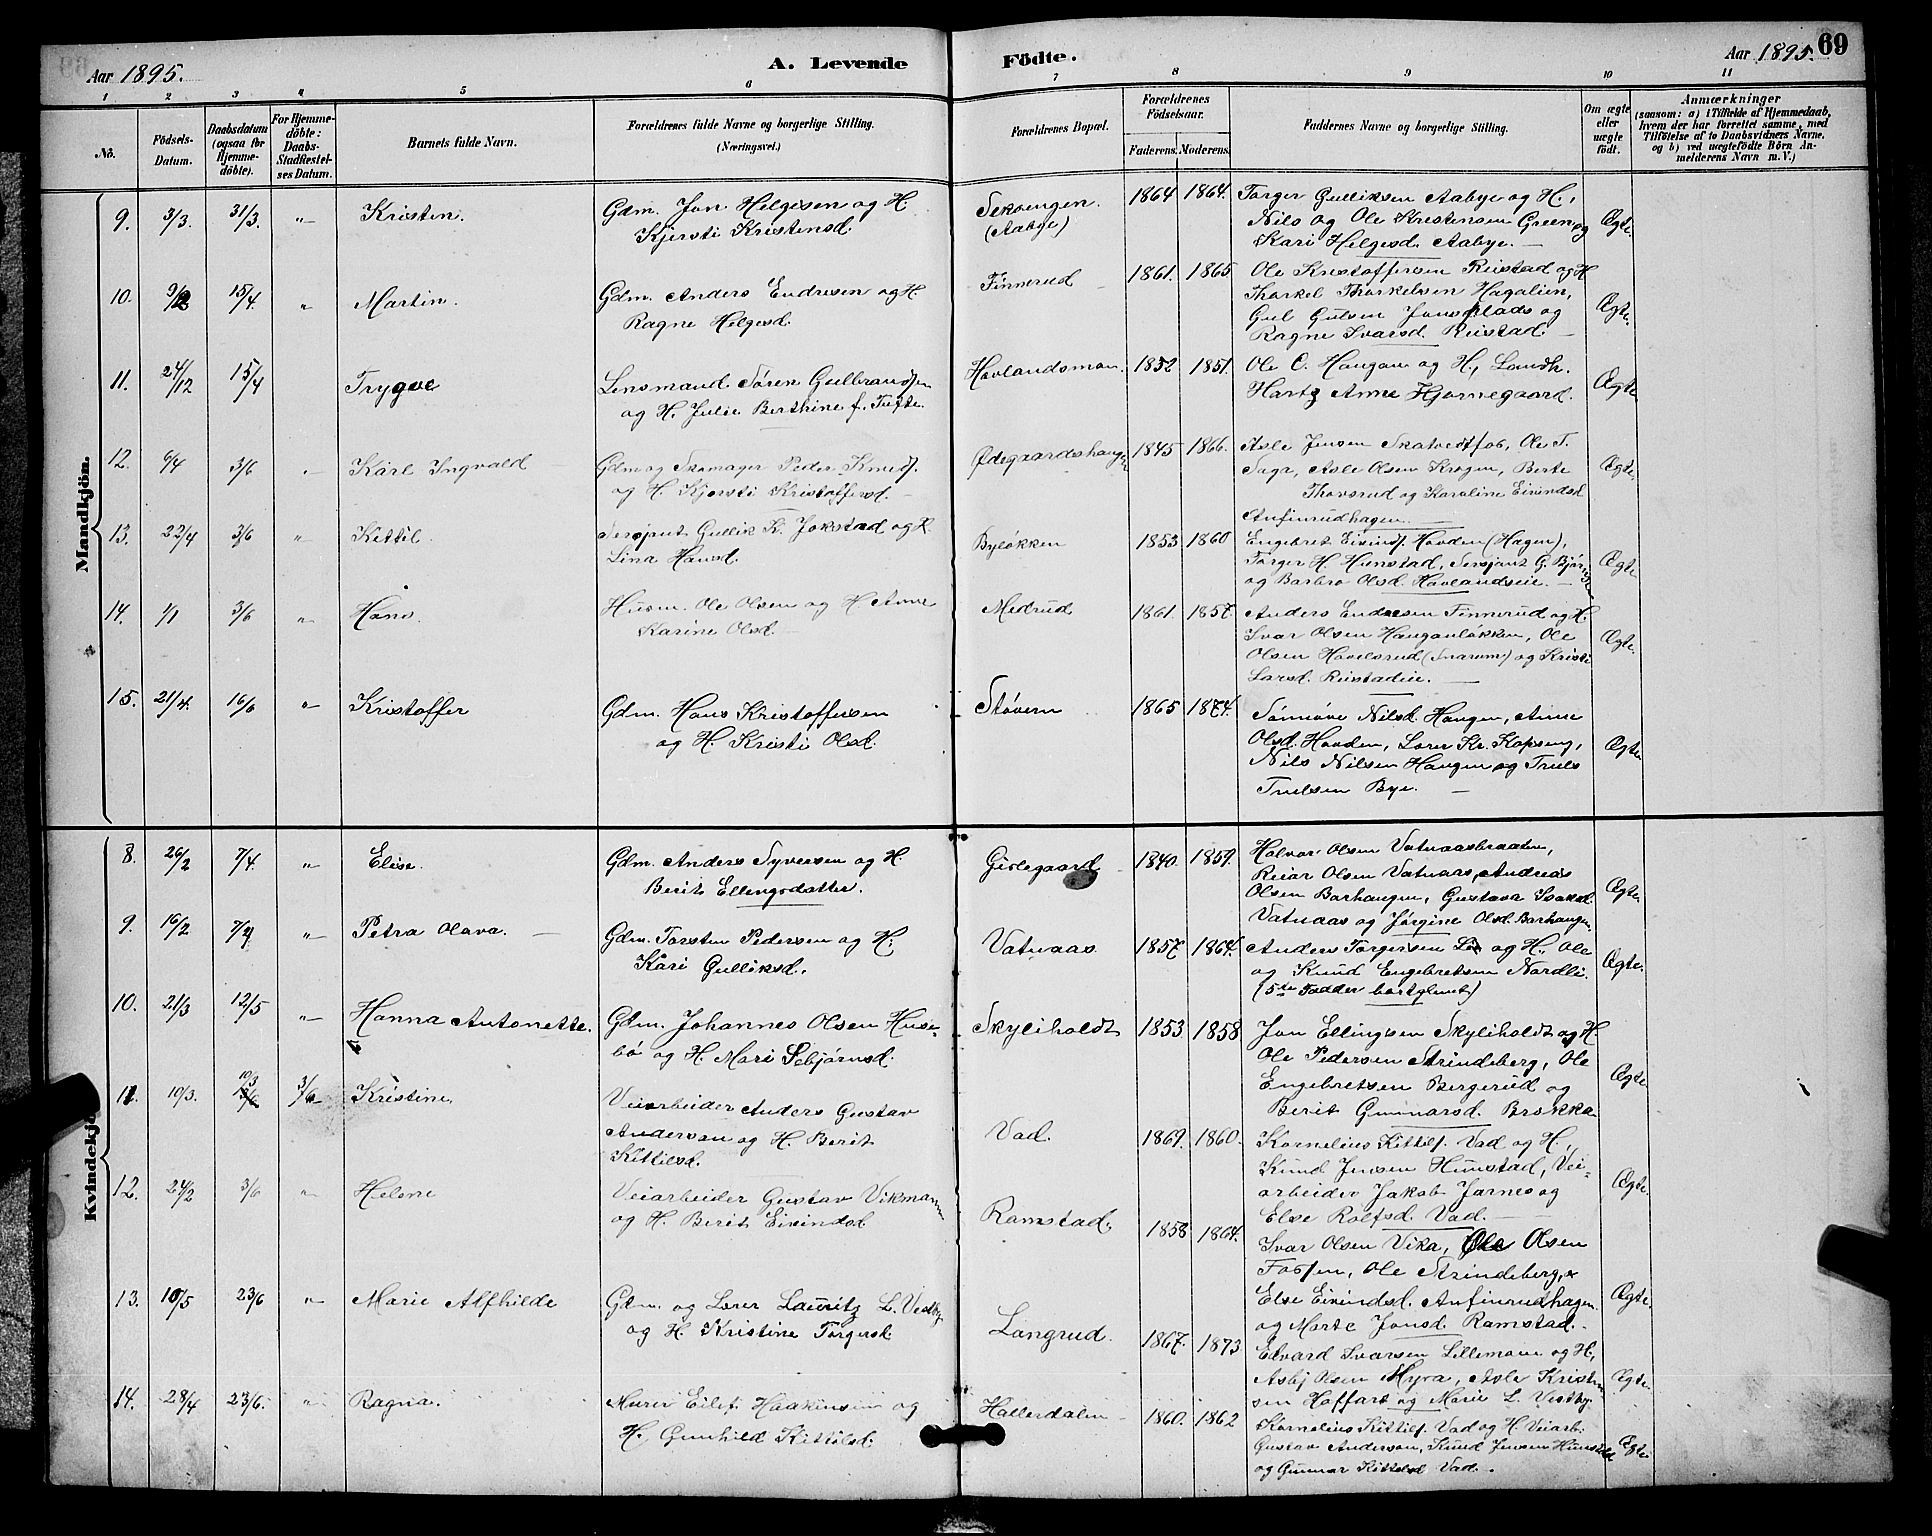 Aar 1895.
A. Levende Födte.
Aar 1895. 69
1 2 3 4 5 6 7 8 9 10 11
No.
Födsels-Datum.
Daabsdatum (ogsaa for Hjemmedöbte).
For Hjemmedöbte: Daabs-Stadfæstelses Datum.
Barnets fulde Navn.
Forældrenes fulde Navne og borgerlige Stilling.
(Næringsvei.)
Forældrenes Bopæl.
Forældrenes Födselsaar.
Faderens. Moderens.
Faddernes Navne og borgerlige Stilling.
Om ægte eller uægte födt.
Anmærkninger
(saasom: a) i Tilfælde af Hjemmedaab, hvem der har forrettet samme, med Tilföielse af to Daabsvidners Navne, og b) ved uægtefödte Börn Anmelderens Navn m. V.)
Mandkjön.
9. 3/3. 31/3. " Kristen. Gdm. Jon Helgesen og H. Kjersti Kristensd. (Aabye) 1864 1864.
Torger Gulliksen Aabye og H.,
Nils og Ole Kristensen Green og
Kari Helgesd. Aabye. Ægte.
10. 15/4. " Martin. Gdm. Anders Endresen og H. Ragne Helgesd. Finnerud 1861. 1865
Ole Kristoffersen Ruistad og H
Thorkel Thorkelsen Hagalien,
Gul Gulsen Jonsplads og
Ragne Ivarsd. Ruistad. Ægte.
11. 24/12 15/4 Trygve Lensmand Sören Gulbrandsen og H. Julie Berthine f. Tufte. Hovlandsmoen. 1852 1851.
Ole C. Haugan og H., Landh.
Hartz Anne Hjornegaard. Ægte
12. 6/4 3/6 " Karl Ingvald Gdm og Skomager Peder Knudf. og H. Kjersti Kristoffersd. Ødegaardshaugen 1845 1866.
Asle Jensen Skatvedtfos, Ole T.
Asle Olsen Krogen, Berte
Thovsrud og Karoline Eivindsd
Anfinrudhagen. Ægte
13. 22/4 3/6 " Kittil. Sersjant Gullik K. Jokstad og H. Lina Hansd. Byløkken 1853 1860
Engebret Eivindf. Hovden (Hagen),
Torger H. Hunstad, Sersjant G.
og Barbro Olsd. Hovlandseie. Ægte
14. 1/1 3/6 " Hans. Husm. Ole Olsen og H Anne Karine Olsd. Medrud 1861. 1857.
Anders Endresen Finnerud og H.
Ivar Olsen Hauganløkken, Ole
Olsen Havelsrud (Snarum) og Kristi
Larsd. Ruistadeie. Ægte.
15. 21/4. 16/6 " Kristoffer Gdm. Hans Kristoffersen og H. Kristi Olsd. Støvern 1865 1874.
Sønnøve Nilsd. Haugen, Anne
Olsd. Hovden, Lærer Kr. Kopseng,
Nils Nilsen Haugen og Truls
Trulsen Bye. Ægte
Kvindekjön.
8. 26/2 7/4 " Elise. Gdm. Anders Syversen og H. Berit Ellingsdatter. Gislegaard 1840. 1859.
Halvor Olsen Vatnaasbraaten,
Reiar Olsen Vatnaas, Andreas
Olsen Barhaugen, Gustava
Vatnaas og Jørgine Olsd. Barhaugen. Ægte
9. 16/2 7/4 " Petra Olava. Gdm. Torsten Pedersen og H. Kari Gulliksd. Vatnaas 1857. 1864.
Anders Torgersen Lie og H., Ole
og Knud Engebretsen Nordli.
(5te Fadder bortglemt) Ægte.
10. 21/3 12/5 " Hanna Antonette. Gdm. Johannes Olsen Husebø og H. Mari Sebjørnsd. Skyliholdt 1853 1858
Jon Ellingsen Skyliholdt og H.
Ole Pedersen Strindeberg, Ole
Engebretsen Bergerud og
Berit Gunnarsd. Brokka. Ægte
11. 10/3. 10/3 3/6 Kristine Veiarbeider Anders Gustav Andersson og H. Berit Kittilsd. Vad. 1869. 1860.
Kornelius Kittilf. Vad og H.,
Knud Jensen Hunstad, Veiarbeider Jakob Jarnes og
Else Rolfsd. Vad. Ægte
12. 24/2 3/6 " Helene Veiarbeider Gustav Vikmann og H. Berit Eivindsd Ramstad. 1858 1864.
Ivar Olsen Vika, Ole Olsen
Fossen, Ole Strindeberg,
Else Eivindsd. Anfinrudhagen
og Marte Jonsd. Ramstad. Ægte.
13. 10/5 23/6 " Marie Alfhilde Gdm. og Lærer Lauritz L. Vestby og H. Kristine Torgersd. Langrud. 1867. 1873
Edvard Ivarsen Lillemoen og H.,
Asbj Olsen Myra, Asle Kristensen Hoffart og Marie L. Vestby. Ægte.
14. 28/4 23/6. " Ragna. Murer Eilef Haakensen og H. Gunhild Kittilsd. Hallerdalen 1860. 1862
Kornelius Kittilf. Vad og H. Veiarb.
Gustav Anderson, Knud Jensen Hunstad
og Gunnar Kittelsd Vad. Ægte